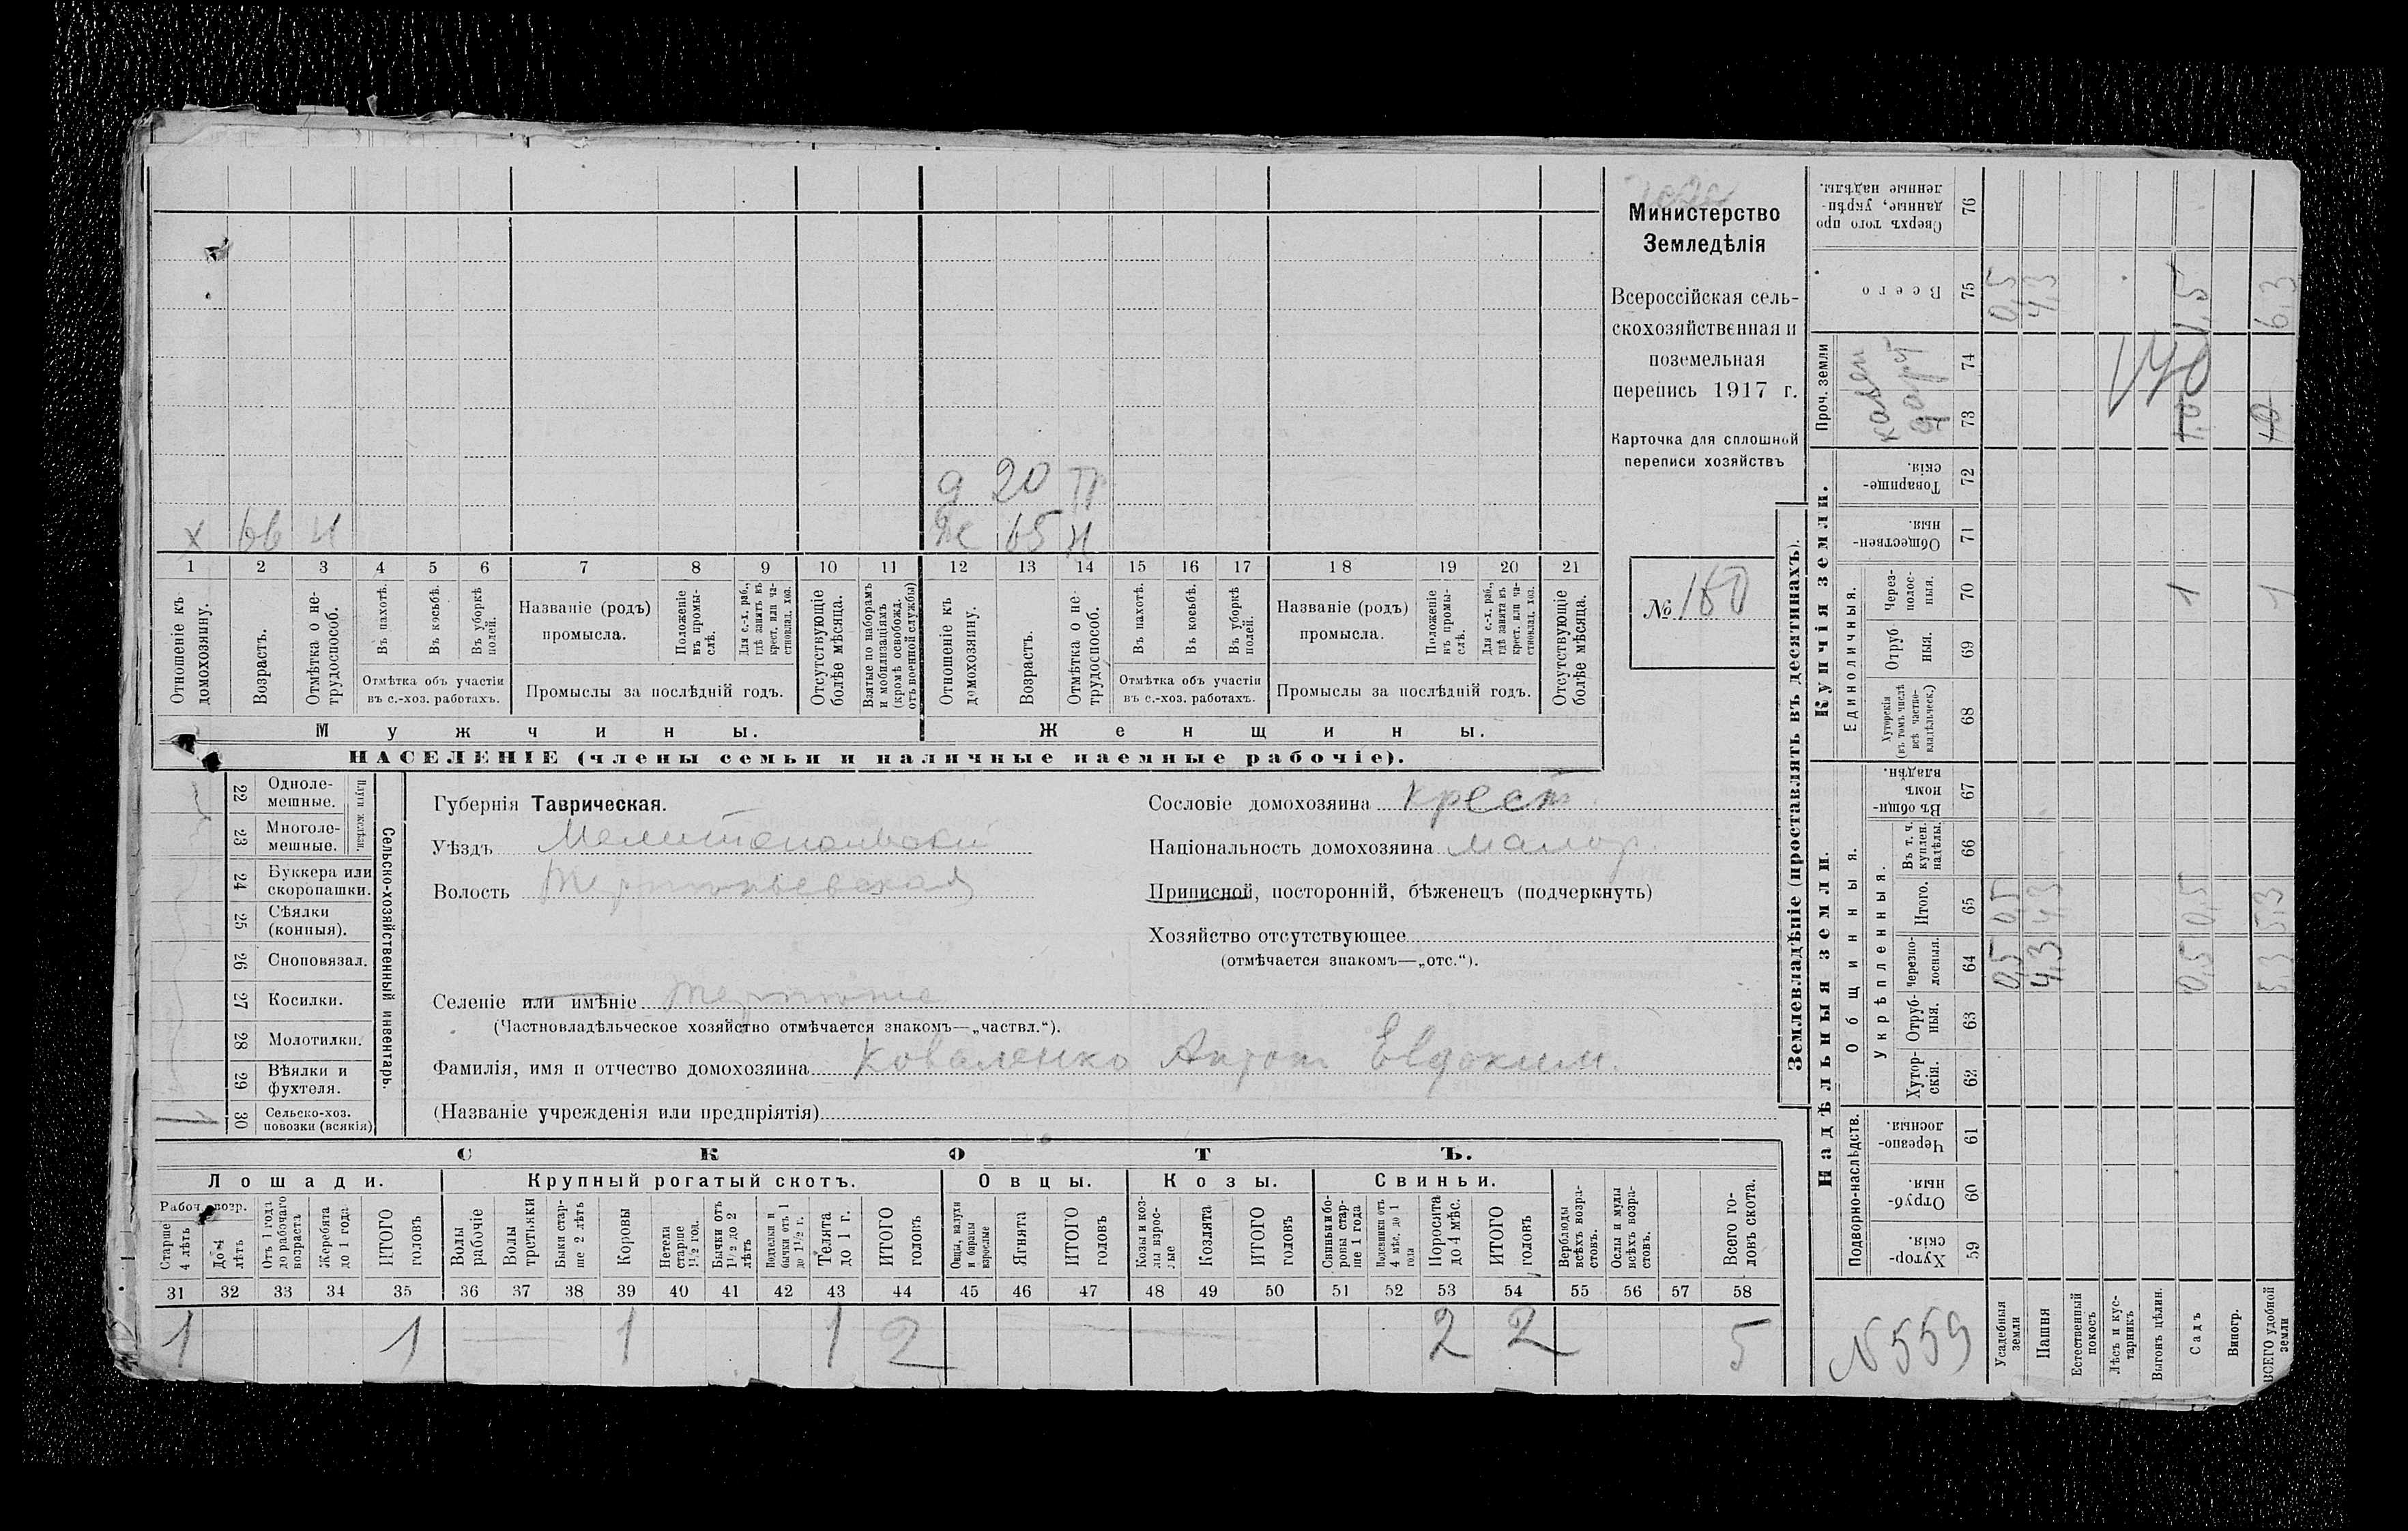 Министерство
Земледѣлія
Всероссійская сель-
скохозяйственная и
поземельная
перепись 1917 г.
Карточка для сплошной
переписи хозяйствъ
№ 160
д 20 П
х 66 н
ж 65 н
1 2 3 4 5 6 7 8 9 10 11 12 13 14 15 16 17 18 19 20 21
Отношеніе къ домохозяину.
Возрастъ.
Отмѣтка о не-трудоспособ.
Въ пахотѣ.
Въ косьбѣ.
Въ уборкѣ полей.
Отмѣтка объ участіи
въ с.-хоз. работахъ.
Названіе (родъ)
промысла.
Положеніе въ промы-слѣ.
Для с.-х. раб., гдѣ занятъ въ крест. или ча-стновлад. хоз.
Промыслы за послѣдній годъ.
Отсутствующіе болѣе мѣсяца.
Взятые по наборамъ и мобилизаціямъ (кромѣ освобожд. отъ военной службы)
Отношеніе къ домохозяину.
Возрастъ.
Отмѣтка о не-трудоспособ.
Въ пахотѣ.
Въ косьбѣ.
Въ уборкѣ полей.
Отмѣтка объ участіи
въ с.-хоз. работахъ.
Названіе (родъ)
промысла.
Положеніе въ промы-слѣ.
Для с.-х. раб., гдѣ занята въ крест. или ча-стновлад. хоз.
Промыслы за послѣдній годъ.
Отсутствующіе болѣе мѣсяца.
Мужчины.
Женщины.
НАСЕЛЕНІЕ (члены семьи и наличные наемные рабочіе).
22 Одноле-мешные.
23 Многоле-мешные.
Плуги желѣзн.
24 Буккера или скоропашки.
25 Сѣялки (конныя).
26 Сноповязал.
27 Косилки.
28 Молотилки.
29 Вѣялки и фухтеля.
1 30 Сельско-хоз. повозки (всякія)
Сельско-хозяйственный инвентарь.
Губернія Таврическая.
Уѣздъ Мелитопольскій
Волость Терпѣньевская
Сословіе домохозяина крест.
Національность домохозяина малор.
Приписной, посторонній, бѣженецъ (подчеркнуть)
Хозяйство отсутствующее
(отмѣчается знакомъ—„отс.“).
Селеніе или имѣніе Терпѣніе
(Частновладѣльческое хозяйство отмѣчается знакомъ—„частвл.“).
Фамилія, имя и отчество домохозяина Коваленко Антон Евдоким.
(Названіе учрежденія или предпріятія)
СКОТЪ.
Лошади.
Крупный рогатый скотъ.
Овцы.
Козы.
Свиньи.
Рабоч. возр.
Старше 4 лѣтъ
До 4 лѣтъ
Отъ 1 года до рабочаго возраста
Жеребята до 1 года
ИТОГО головъ
Волы рабочіе
Волы третьяки
Быки стар-ше 2 лѣтъ
Коровы
Нетели старше 1½ год.
Бычки отъ 1½ до 2 лѣтъ
Подтелки и бычки отъ 1 до 1½ г.
Телята до 1 г.
ИТОГО головъ
Овцы, валухи и бараны взрослые
Ягнята
ИТОГО головъ
Козы и коз-лы взрос-лые
Козлята
ИТОГО головъ
Свиньи и бо-ровы стар-ше 1 года
Подсвинки отъ 4 мѣс. до 1 года
Поросята до 4 мѣс.
ИТОГО головъ
Верблюды всѣхъ возра-стовъ.
Ослы и мулы всѣхъ возра-стовъ.
Всего го-ловъ скота.
31 32 33 34 35 36 37 38 39 40 41 42 43 44 45 46 47 48 49 50 51 52 53 54 55 56 57 58
1 1 1 1 2 2 2 5
Землевладѣніе (проставлять въ десятинахъ).
Сверхъ того про данные, укрѣп-ленные надѣлы. 76
Всего 75 0,5 4,3 1,5 6,3
Проч. земли
74
73 1,0 1,0
Купчія земли.
Товарище-скія. 72
Обществен-ныя. 71
Единоличныя.
Через-полос-ныя. 70 1 1
Отруб-ныя. 69
Хуторскія (въ томъ числѣ всѣ частно-владѣльческ.) 68
Надѣльныя земли.
Общинныя.
Въ общи-номъ владѣн. 67
Укрѣпленныя.
Въ т. ч. куплен. надѣлы. 66
Итого. 65 0,5 4,3 0,5 5,3
Черезпо-лосныя. 64 0,5 4,3 0,5 5,3
Отруб-ныя. 63
Хутор-скія. 62
Подворно-наслѣдств.
Черезпо-лосныя. 61
Отруб-ныя. 60
Хутор-скія. 59
N 559
Усадебныя земли
Пашня
Естественный покосъ
Лѣсъ и кус-тарникъ
Выгонъ цѣлин.
Садъ
Виногр.
ВСЕГО удобной земли